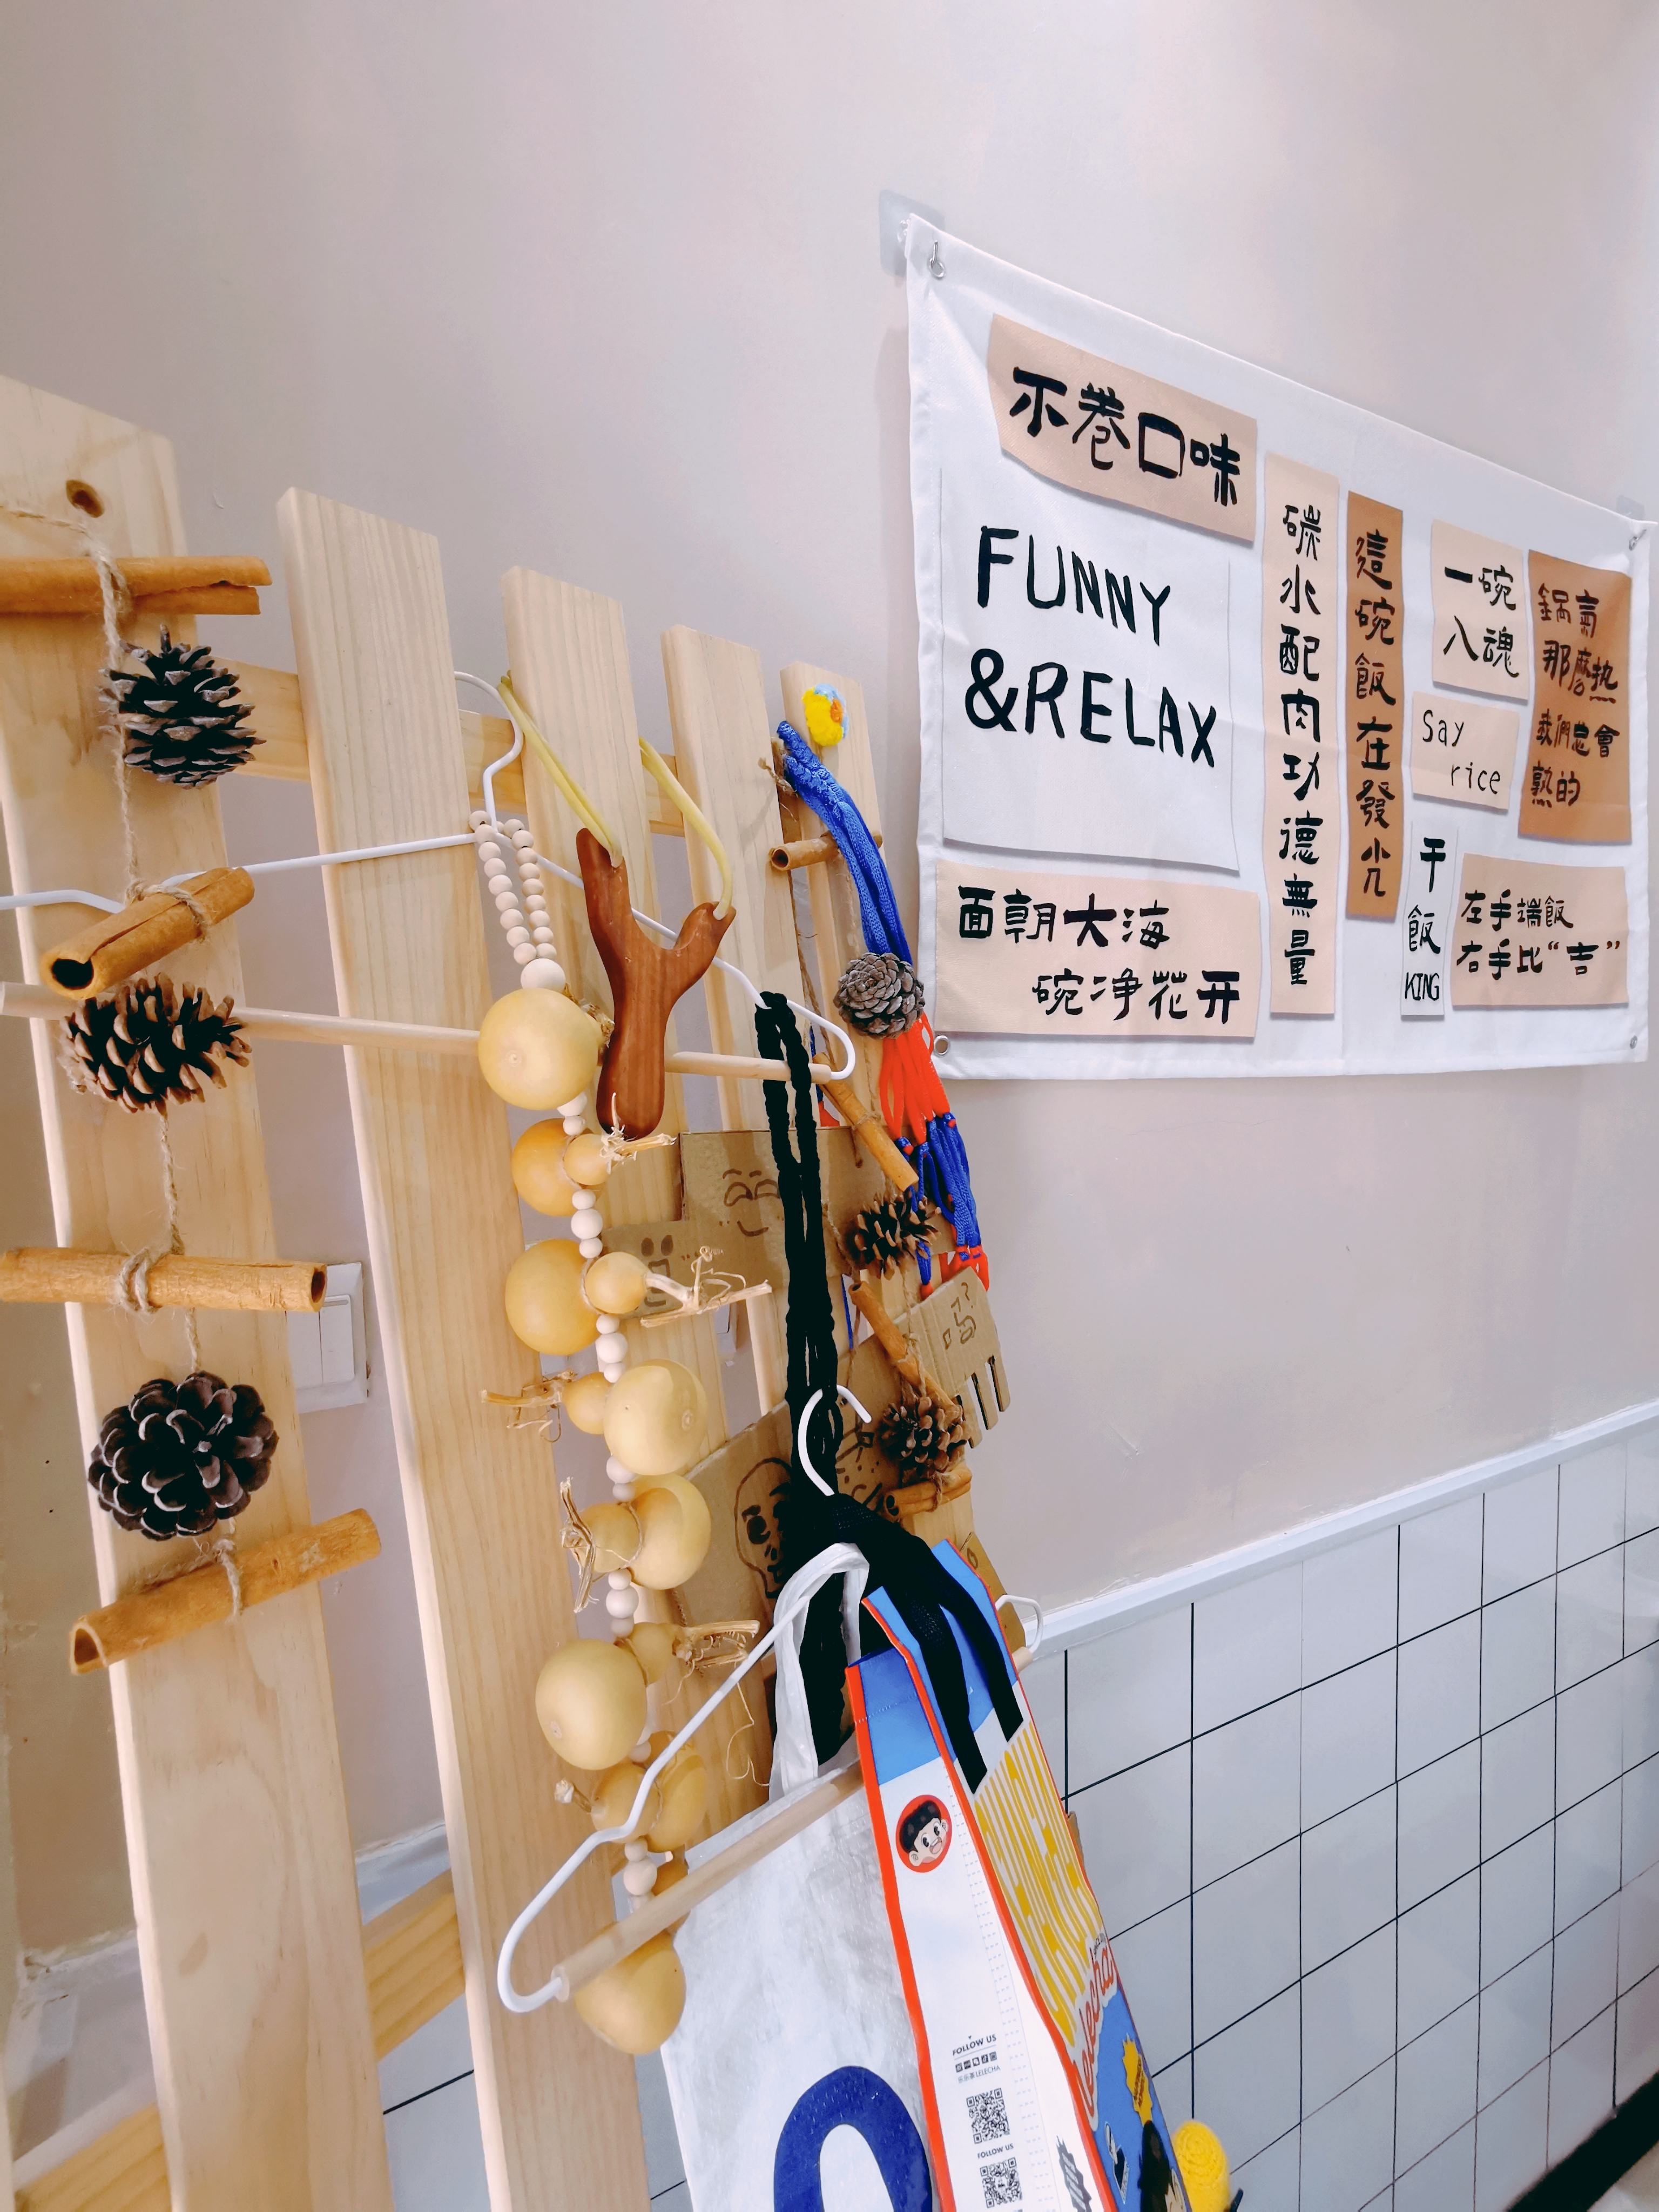 不卷口味
FUNNY
&RELAX
面朝大海
碗净花开
碳水配肉功德無量
這碗飯在發光
一碗
入魂
say
rice
干飯KING
鍋氣
那麼热
我們總會
熟的
左手端飯
右手比“吉”
吗
??
FOLLOW US
乐乐茶LELECHA
FOLLOW US
lelecha